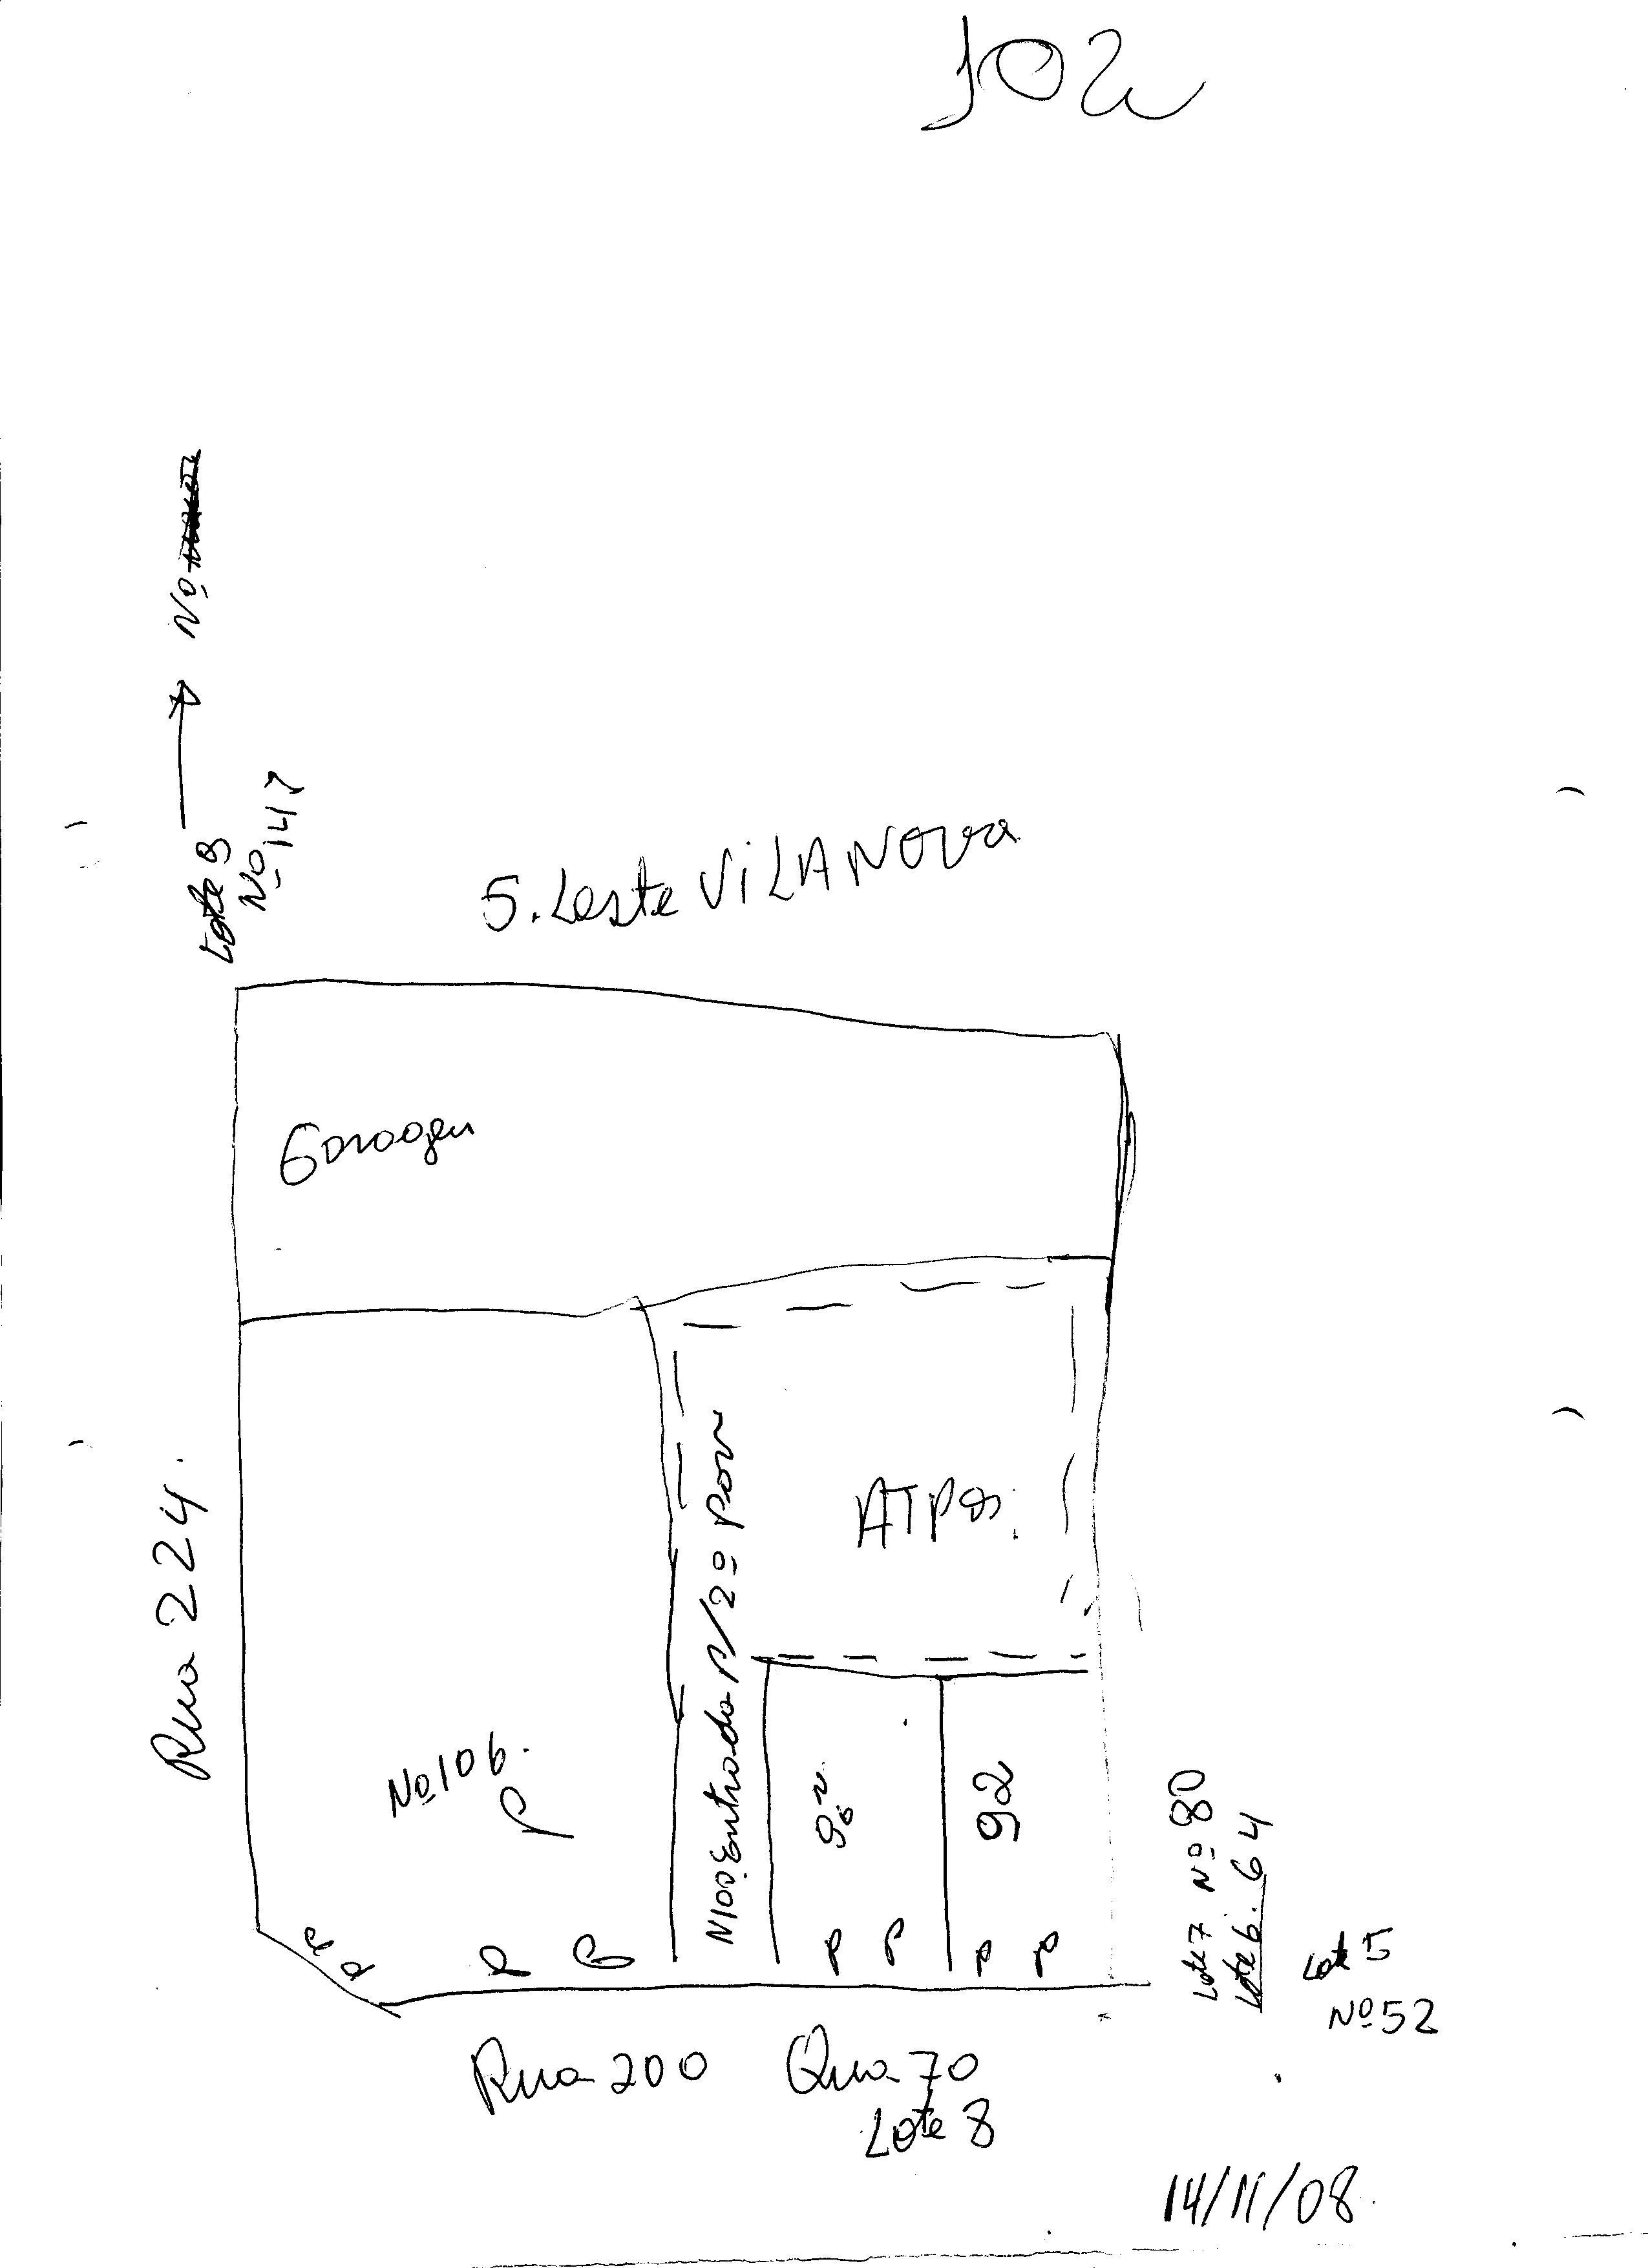 102
Nº
Lote 9
Nº 147
S. Leste VILA NOVA
Garagem
Rua 224.
N100 Entrada p/2º Pav
ATPos.
Nº 106.
P
92
P P
P P
P P
P P
Lote 7 Nº 80
Lote 6. 64
Lote 5
Nº 52
Rua 200 Qua 70
Lote 8
14/11/08.